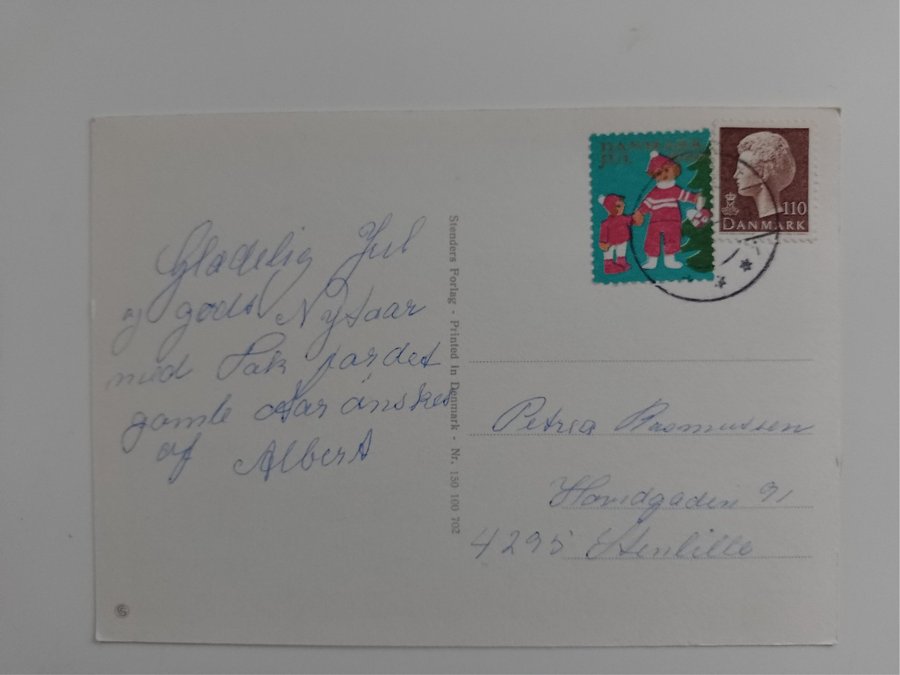 Glædelig Jul
og godt Nytaar
med Tak for det
gamle Aar ønskes
af Albert
Stenders Forlag - Printed in Denmark - Nr. 150 100 702
DANMARK
JUL
110
DANMARK
Petrea Rasmussen
Hovedgaden 91
4295 Stenlille